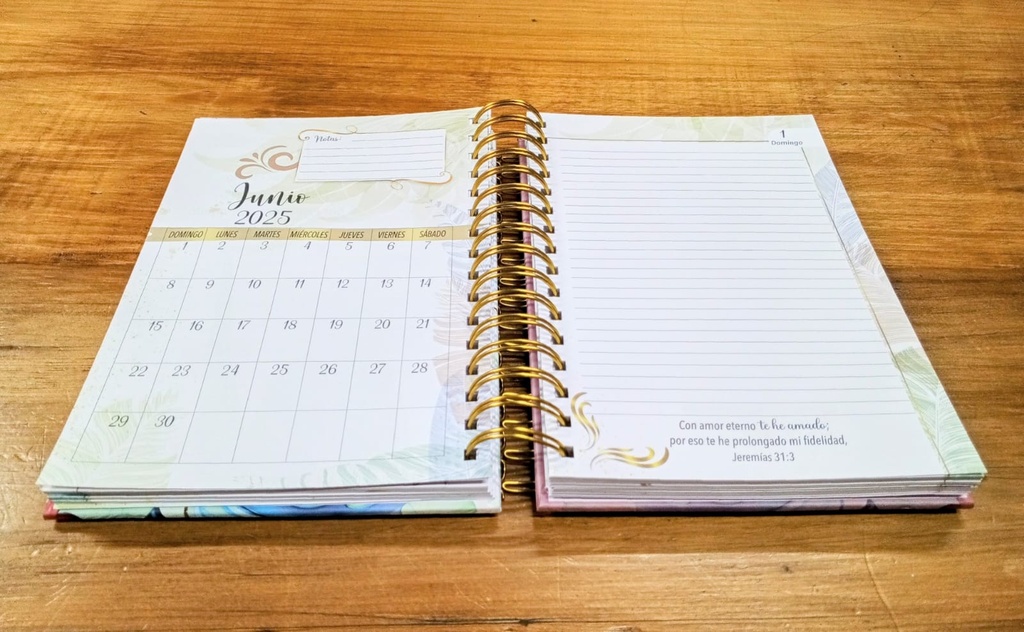 Notas:
Junio
2025
DOMINGO LUNES MARTES MIÉRCOLES JUEVES VIERNES SÁBADO
1 2 3 4 5 6 7
8 9 10 11 12 13 14
15 16 17 18 19 20 21
22 23 24 25 26 27 28
29 30
1
Domingo
Con amor eterno te he amado;
por eso te he prolongado mi fidelidad,
Jeremías 31:3